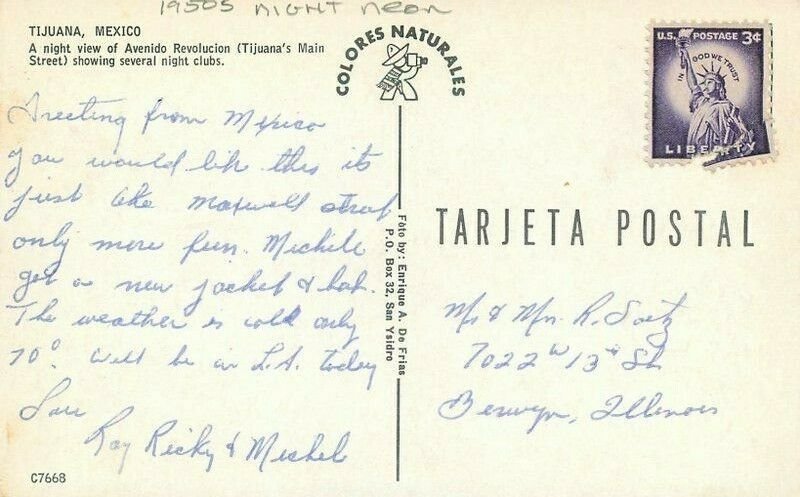 1950s NIGHT Neon
TIJUANA, MEXICO
A night view of Avenido Revolucion (Tijuana's Main
Street) showing several night clubs.
COLORES NATURALES
U.S. POSTAGE 3¢
IN GOD WE TRUST
LIBERTY
Greeting from Mexico
you would like this its
just like maxwell street
only more fun. Michele
got a new jacket & hat.
The weather is cold only
70°. Will be in L.A. today
Ray Ricky & Meshel
C7668
Foto by: Enrique A. De Frias
P.O. Box 32, San Ysidro
TARJETA POSTAL
Mr & Mrs. R.
7022 W 13th St
Berwyn, Illinois